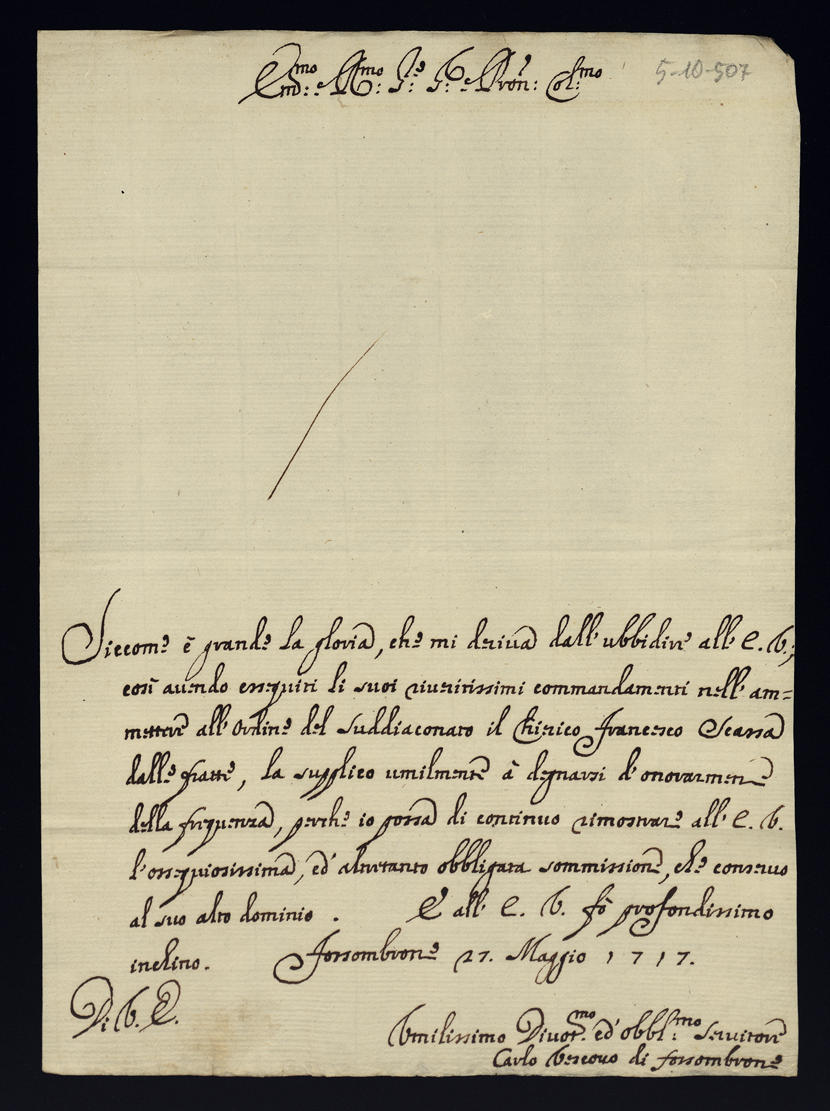 Em.mo e R.mo Sig.re Sig.re e Pron: Col.mo
5-10-507
Siccome è grande la gloria, che mi deriva dall'ubbidire all'E. V.,
così avendo esseguiti li suoi riveritissimi commandamenti nell'am=
mettere all'Ordine del Suddiaconato il Chirico Francesco Scassa
dalle fratte, la supplico umilmente à degnarsi d'onorarmene
della frequenza, perche io possa di continuo rimostrare all'E. V.
l'ossequiosissima, ed' altretanto obbligata sommissione, che conservo
al suo alto dominio. E all'E. V. fò profondissimo
inchino. Fossombrone 27. Maggio 1717.
Di V. E.
Vmilissimo Divot.mo ed' obbl.mo Servitore
Carlo Vescovo di Fossombrone